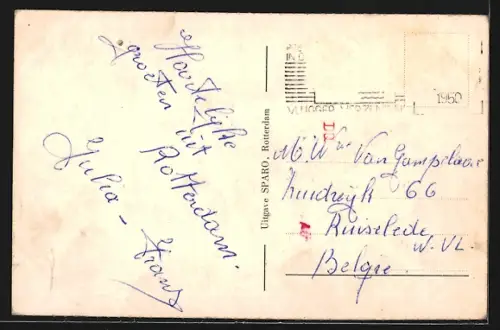 Hartelijke
groeten uit
Rotterdam.
Julia - Frans
Uitgave SPARO, Rotterdam
1960
M. Wwe Van
Kundrijk 66
Ruiselede
W. VL.
Belgie.